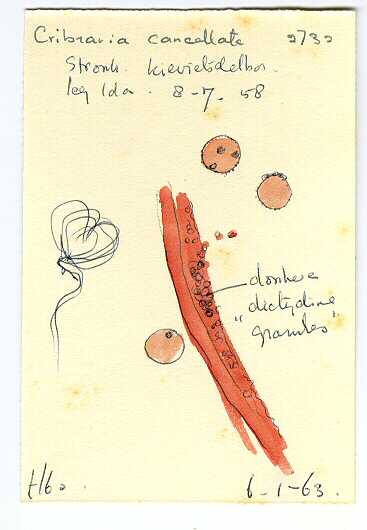 Cribraria cancellate 2732
Stronk. Kievietsdelbos.
leg Ida. 8-7. 58
donkere
"dictydine
granules"
H60.
6-1-63.